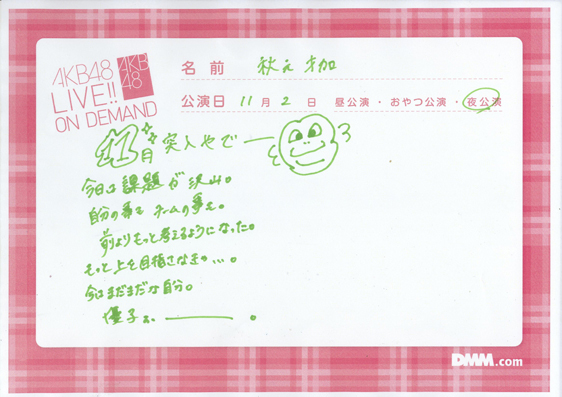 AKB48
LIVE!!
ON DEMAND
AKB
48
名前 秋元才加
公演日 11月2日 昼公演・おやつ公演・夜公演
11月突入やでー
今日は課題が沢山。
自分の事もチームの事も。
前よりもっと考えるようになった。
もっと上を目指さなきゃ…。
今はまだまだな自分。
優子ぉ、———。
DMM.com